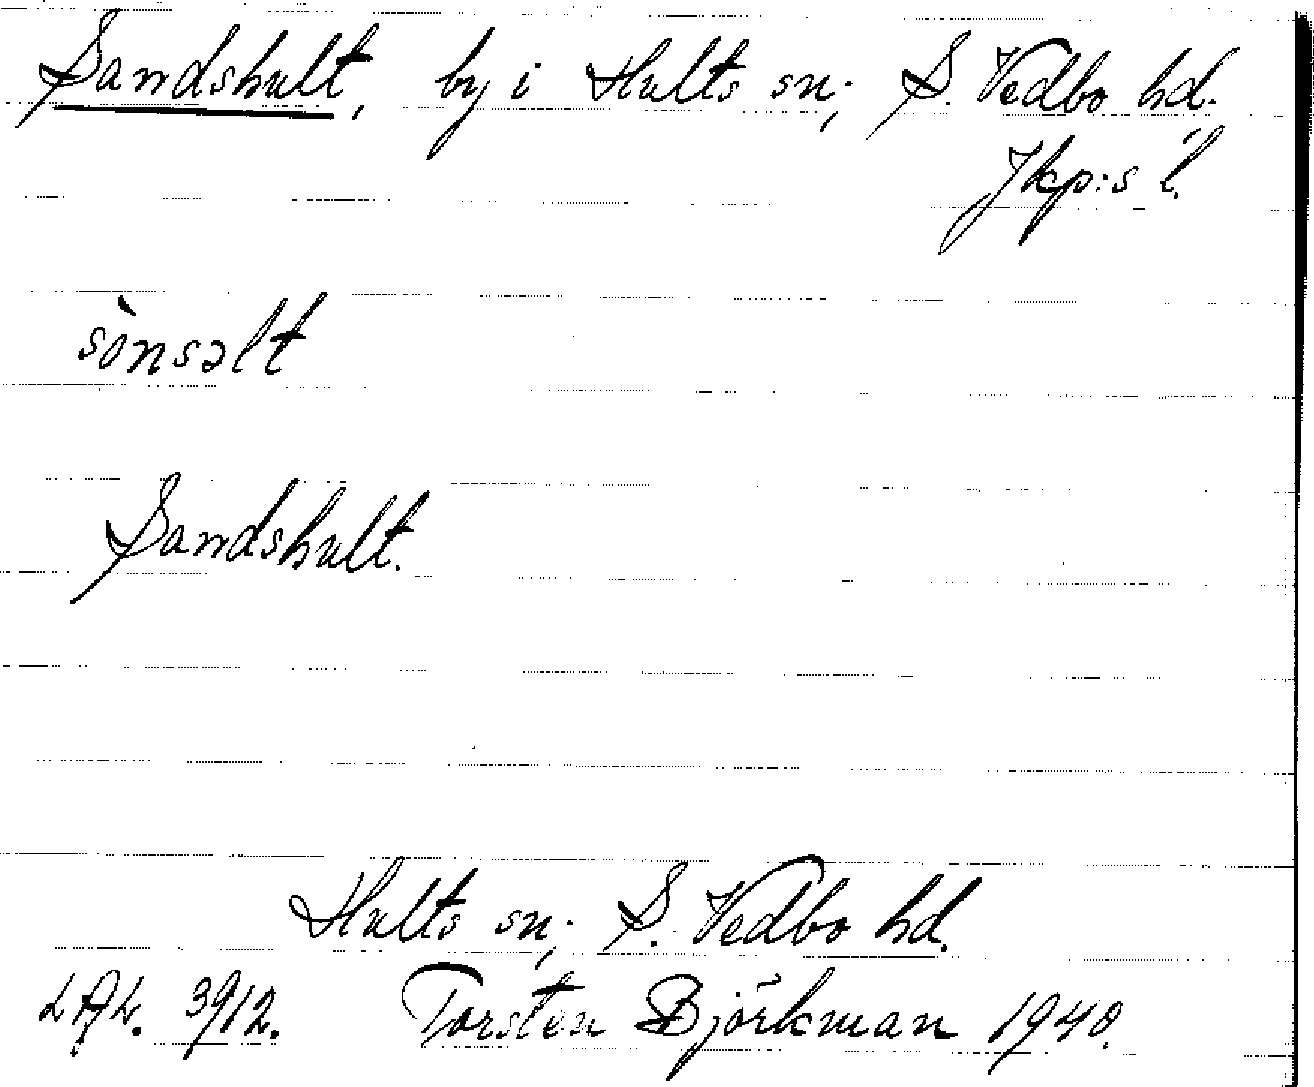 Sandshult, by i Hults sn, S. Vedbo hd.
Jkp:s l.
sònsəlt
Sandshult.
Hults sn, S. Vedbo hd.
3912. Torsten Björkman 1940.